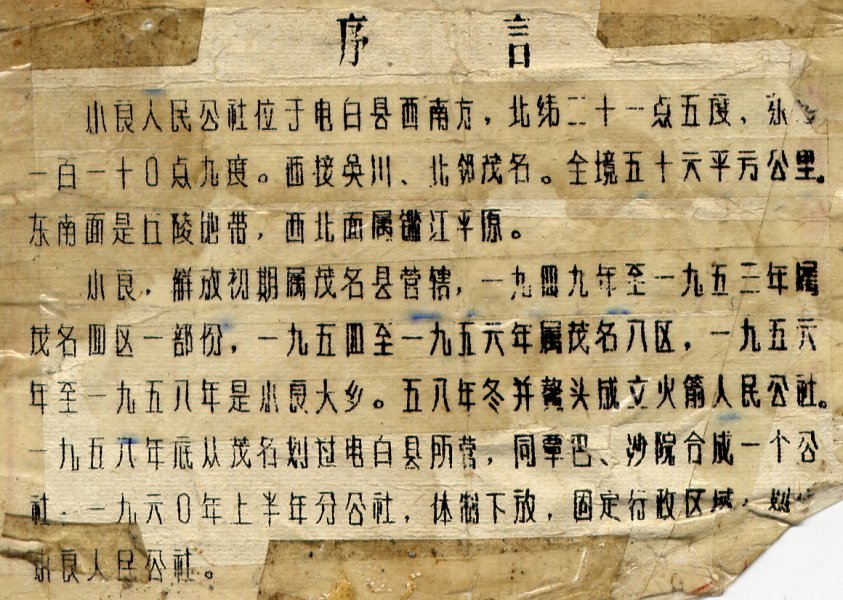 序言
小良人民公社位于电白县西南方，北纬二十一点五度、东
一百一十0点九度。西接吳川、北邻茂名。全境五十六平方公里。
东南面是丘陵地带，西北面属鑑江平原。
小良，解放初期属茂名县营辖，一九四九年至一九五三年属
茂名四区一部份，一九五四至一九五六年属茂名八区，一九五六
年至一九五八年是小良大乡。五八年冬并鳌头成立火箭人民公社。
一九五八年底从茂名划过电白县所营，同覃巴、沙院合成一个公
社，一九六0年上半年分公社，体制下放，固定行政区域，划
小良人民公社。